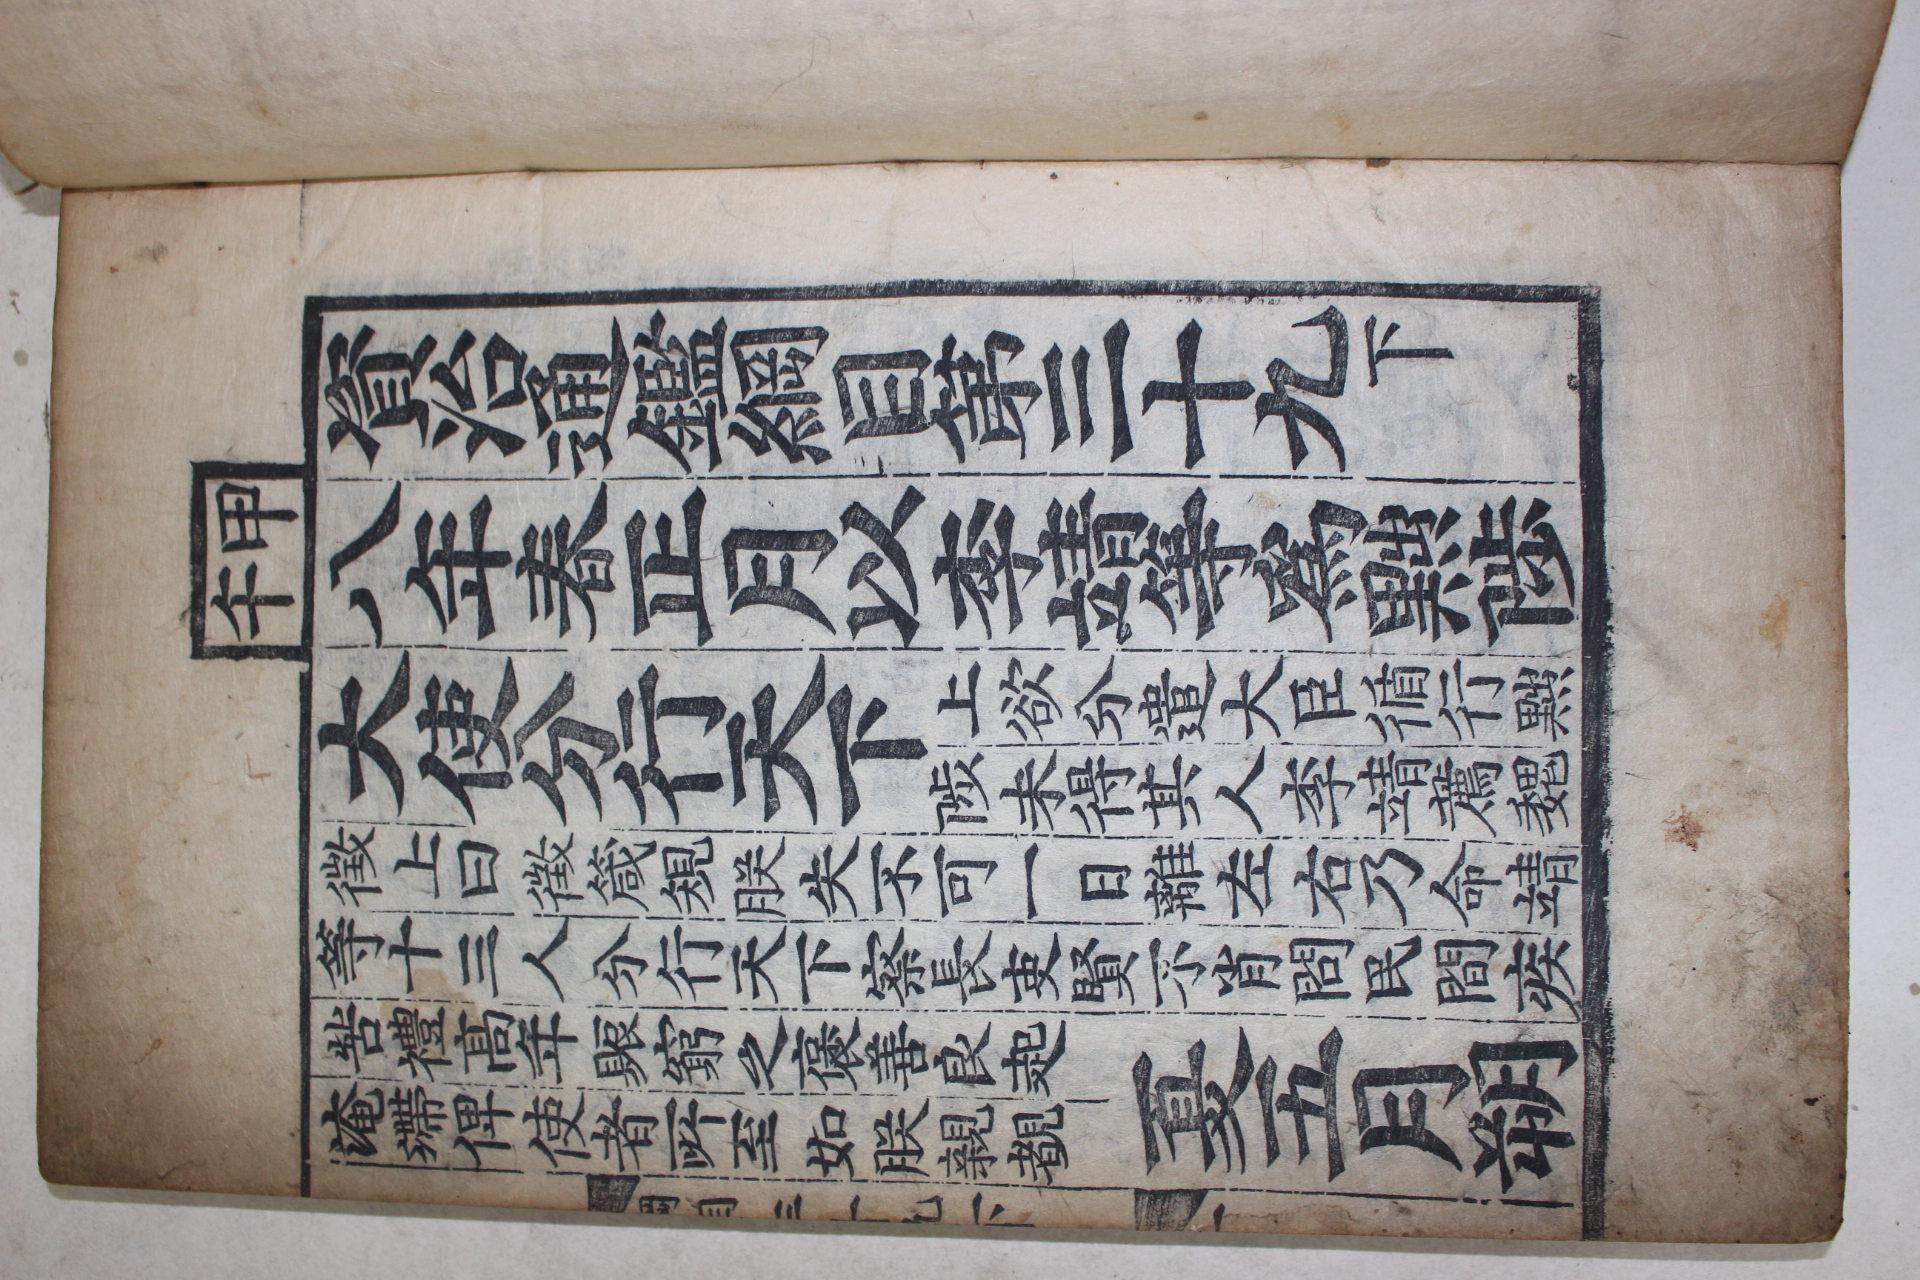 資治通鑑綱目第三十九下
甲午
八年春正月以李靖等爲黜陟
大使分行天下
上欲分遣大臣循行黜
陟未得其人李靖薦魏
徵上曰徵箴規朕失不可一日離左右乃命靖
等十三人分行天下察長吏賢不肖問民間疾
苦禮高年賑窮乏褒善良起
淹滯俾使者所至如朕親覩
夏五月朔
綱目三十九下